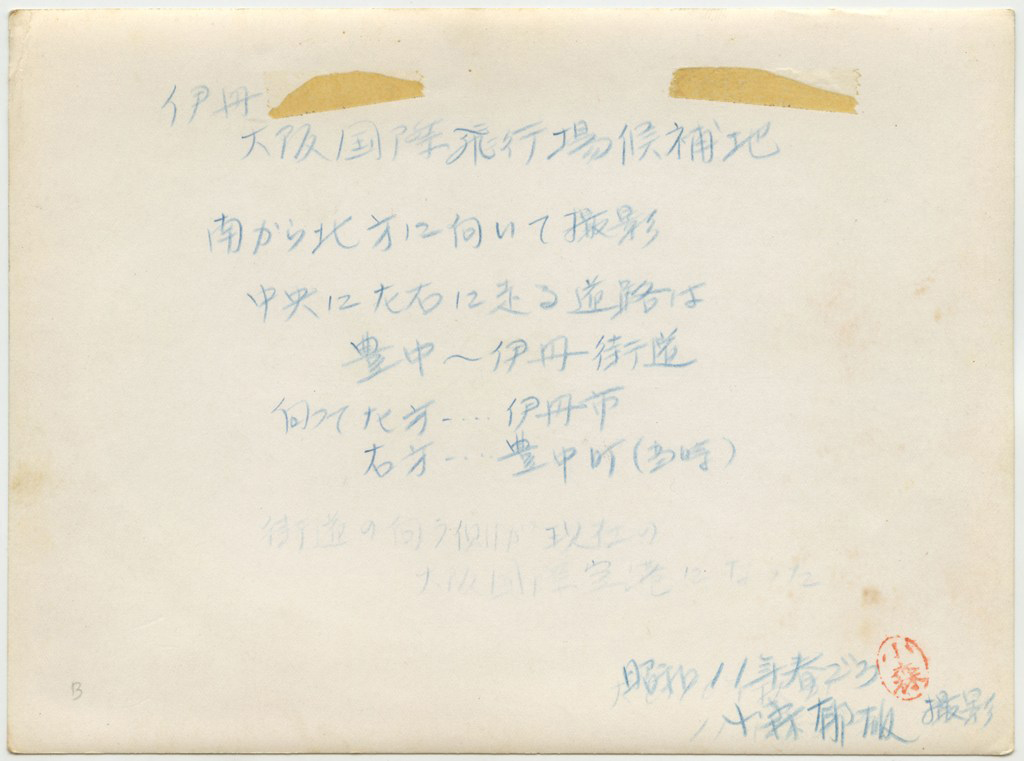 伊丹
大阪国際飛行場候補地
南から北方に向いて撮影
中央に左右に走る道路は
豊中～伊丹街道
向って左方‥‥伊丹市
右方‥‥豊中町(当時)
街道の向う側が現在の
大阪国際空港になった
昭和11年春ごろ
小森郁 撮影
小森
B